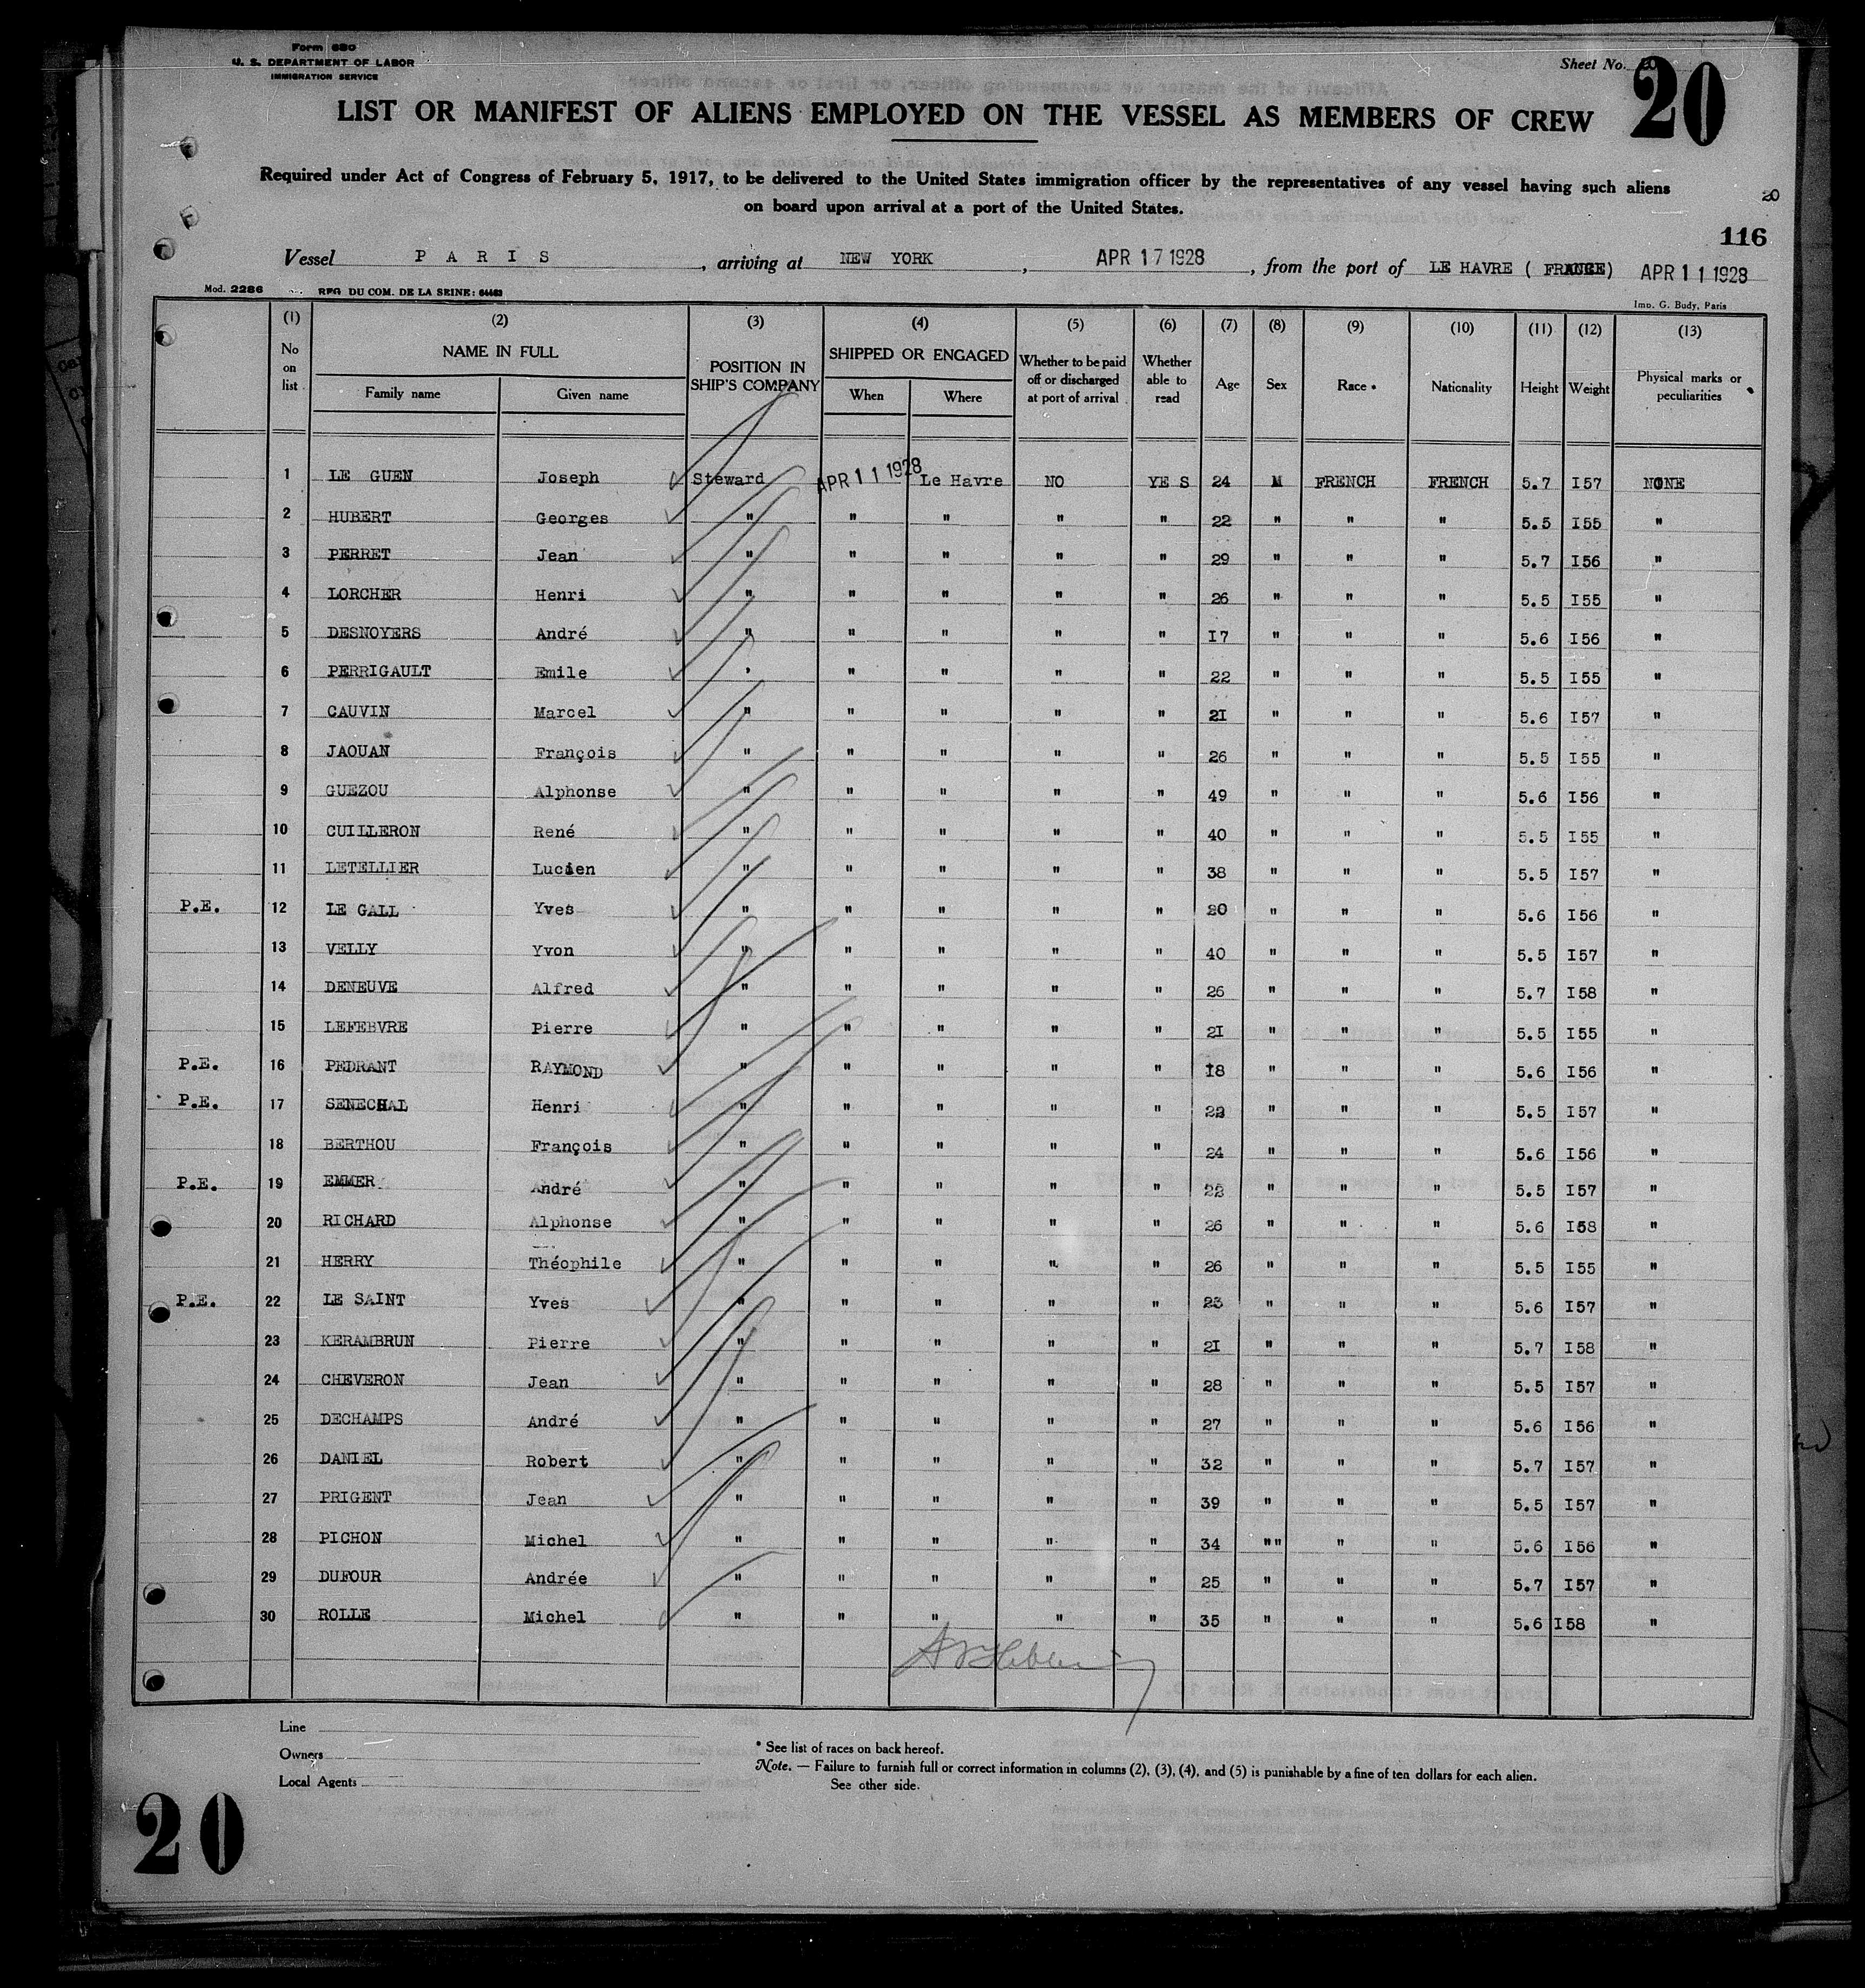 Form 680
U. S. DEPARTMENT OF LABOR
IMMIGRATION SERVICE
Sheet No. 20
20
LIST OR MANIFEST OF ALIENS EMPLOYED ON THE VESSEL AS MEMBERS OF CREW
Required under Act of Congress of February 5, 1917, to be delivered to the United States immigration officer by the representatives of any vessel having such aliens
on board upon arrival at a port of the United States.
20
116
Vessel PARIS, arriving at NEW YORK, APR 17 1928, from the port of LE HAVRE (FRANCE) APR 11 1928
Mod. 2286 RFG DU COM. DE LA SEINE: 64463
Imp. G. Budy, Paris
(1) No on list (2) NAME IN FULL Family name Given name (3) POSITION IN SHIP'S COMPANY (4) SHIPPED OR ENGAGED When Where (5) Whether to be paid off or discharged at port of arrival (6) Whether able to read (7) Age (8) Sex (9) Race * (10) Nationality (11) Height (12) Weight (13) Physical marks or peculiarities
1 LE GUEN Joseph Steward APR 11 1928 Le Havre NO YES 24 M FRENCH FRENCH 5.7 I57 NONE
2 HUBERT Georges " " " " " 22 " " " 5.5 I55 "
3 PERRET Jean " " " " " 29 " " " 5.7 I56 "
4 LORCHER Henri " " " " " 26 " " " 5.5 I55 "
5 DESNOYERS André " " " " " I7 " " " 5.6 I56 "
6 PERRIGAULT Emile ' " " " " 22 " " " 5.5 I55 "
7 CAUVIN Marcel " " " " " 2I " " " 5.6 I57 "
8 JAOUAN François " " " " " 26 " " " 5.5 I55 "
9 GUEZOU Alphonse " " " " " 49 " " " 5.6 I56 "
10 CUILLERON René " " " " " 40 " " " 5.5 I55 "
11 LETELLIER Lucien " " " " " 38 " " " 5.5 I57 "
P.E. 12 LE GALL Yves " " " " " 20 " " " 5.6 I56 "
13 VELLY Yvon " " " " " 40 " " " 5.5 I57 "
14 DENEUVE Alfred " " " " " 26 " " " 5.7 I58 "
15 LEFEBVRE Pierre " " " " " 2I " " " 5.5 I55 "
P.E. 16 PEDRANT RAYMOND " " " " " I8 " " " 5.6 I56 "
P.E. 17 SENECHAL Henri " " " " " 22 " " " 5.5 I57 "
18 BERTHOU François " " " " " 24 " " " 5.6 I56 "
P.E. 19 EMMER André " " " " " 22 " " " 5.5 I57 "
20 RICHARD Alphonse " " " " " 26 " " " 5.6 I58 "
21 HERRY Théophile " " " " " 26 " " " 5.5 I55 "
P.E. 22 LE SAINT Yves " " " " " 23 " " " 5.6 I57 "
23 KERAMBRUN Pierre " " " " " 2I " " " 5.7 I58 "
24 CHEVERON Jean " " " " " 28 " " " 5.5 I57 "
25 DECHAMPS André " " " " " 27 " " " 5.6 I56 "
26 DANIEL Robert " " " " " 32 " " " 5.7 I57 "
27 PRIGENT Jean " " " " " 39 " " " 5.5 I57 "
28 PICHON Michel " " " " " 34 "" " " 5.6 I56 "
29 DUFOUR Andrée " " " " " 25 " " " 5.7 I57 "
30 ROLLE Michel " " " " " 35 " " " 5.6 I58 "
Line
Owners
Local Agents
* See list of races on back hereof.
Note. — Failure to furnish full or correct information in columns (2), (3), (4), and (5) is punishable by a fine of ten dollars for each alien.
See other side.
20